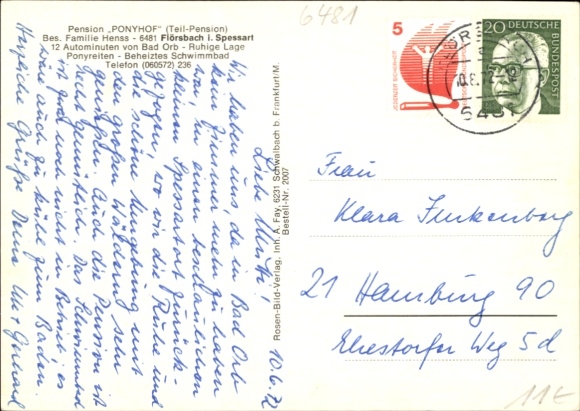 Pension „PONYHOF" (Teil-Pension)
Bes. Familie Henss - 6481 Flörsbach i. Spessart
12 Autominuten von Bad Orb - Ruhige Lage
Ponyreiten - Beheiztes Schwimmbad
Telefon (060572) 236
6481
5
JEDERZEIT SICHERHEIT
20 DEUTSCHE BUNDESPOST
6481
10.6.72
Liebe Mutti!
Wir haben uns, da in Bad Orb
kein Zimmer mehr zu haben
war, in einen beschaulichen
kleinen Spessartort zurück-
gezogen, wo wir die Ruhe und
die schöne Umgebung mit
den großen Wäldern sehr
genießen. Auch die Pension ist
recht gemütlich. Das Schwimmbad
ist zwar noch nicht in Betrieb, es
wäre auch zu kühl zum Baden.
Herzliche Grüße Deine
Rosen-Bild-Verlag. Inh. A. Fay, 6231 Schwalbach b. Frankfurt/M.
Bestell-Nr. 2007
Frau
Klara Funkenberg
21 Hamburg 90
Ehestorfer Weg 5d
11€